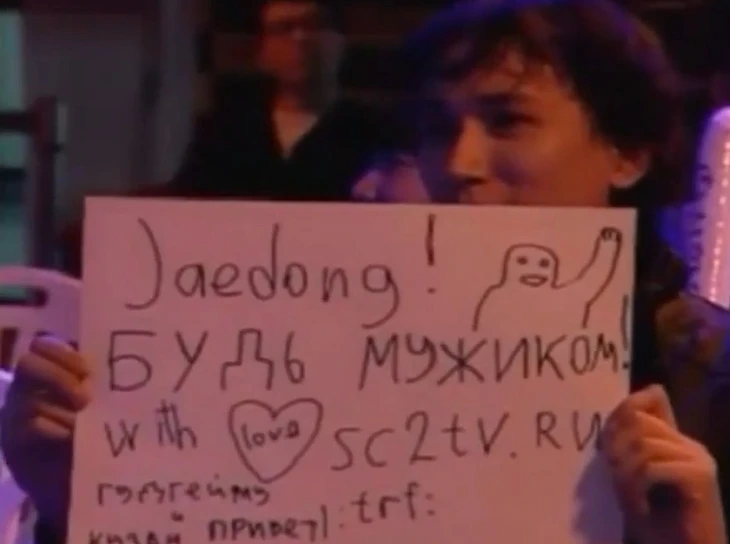 Jaedong!
БУДЬ МУЖИКОМ!
with love sc2tv.RU
привет! :trf: